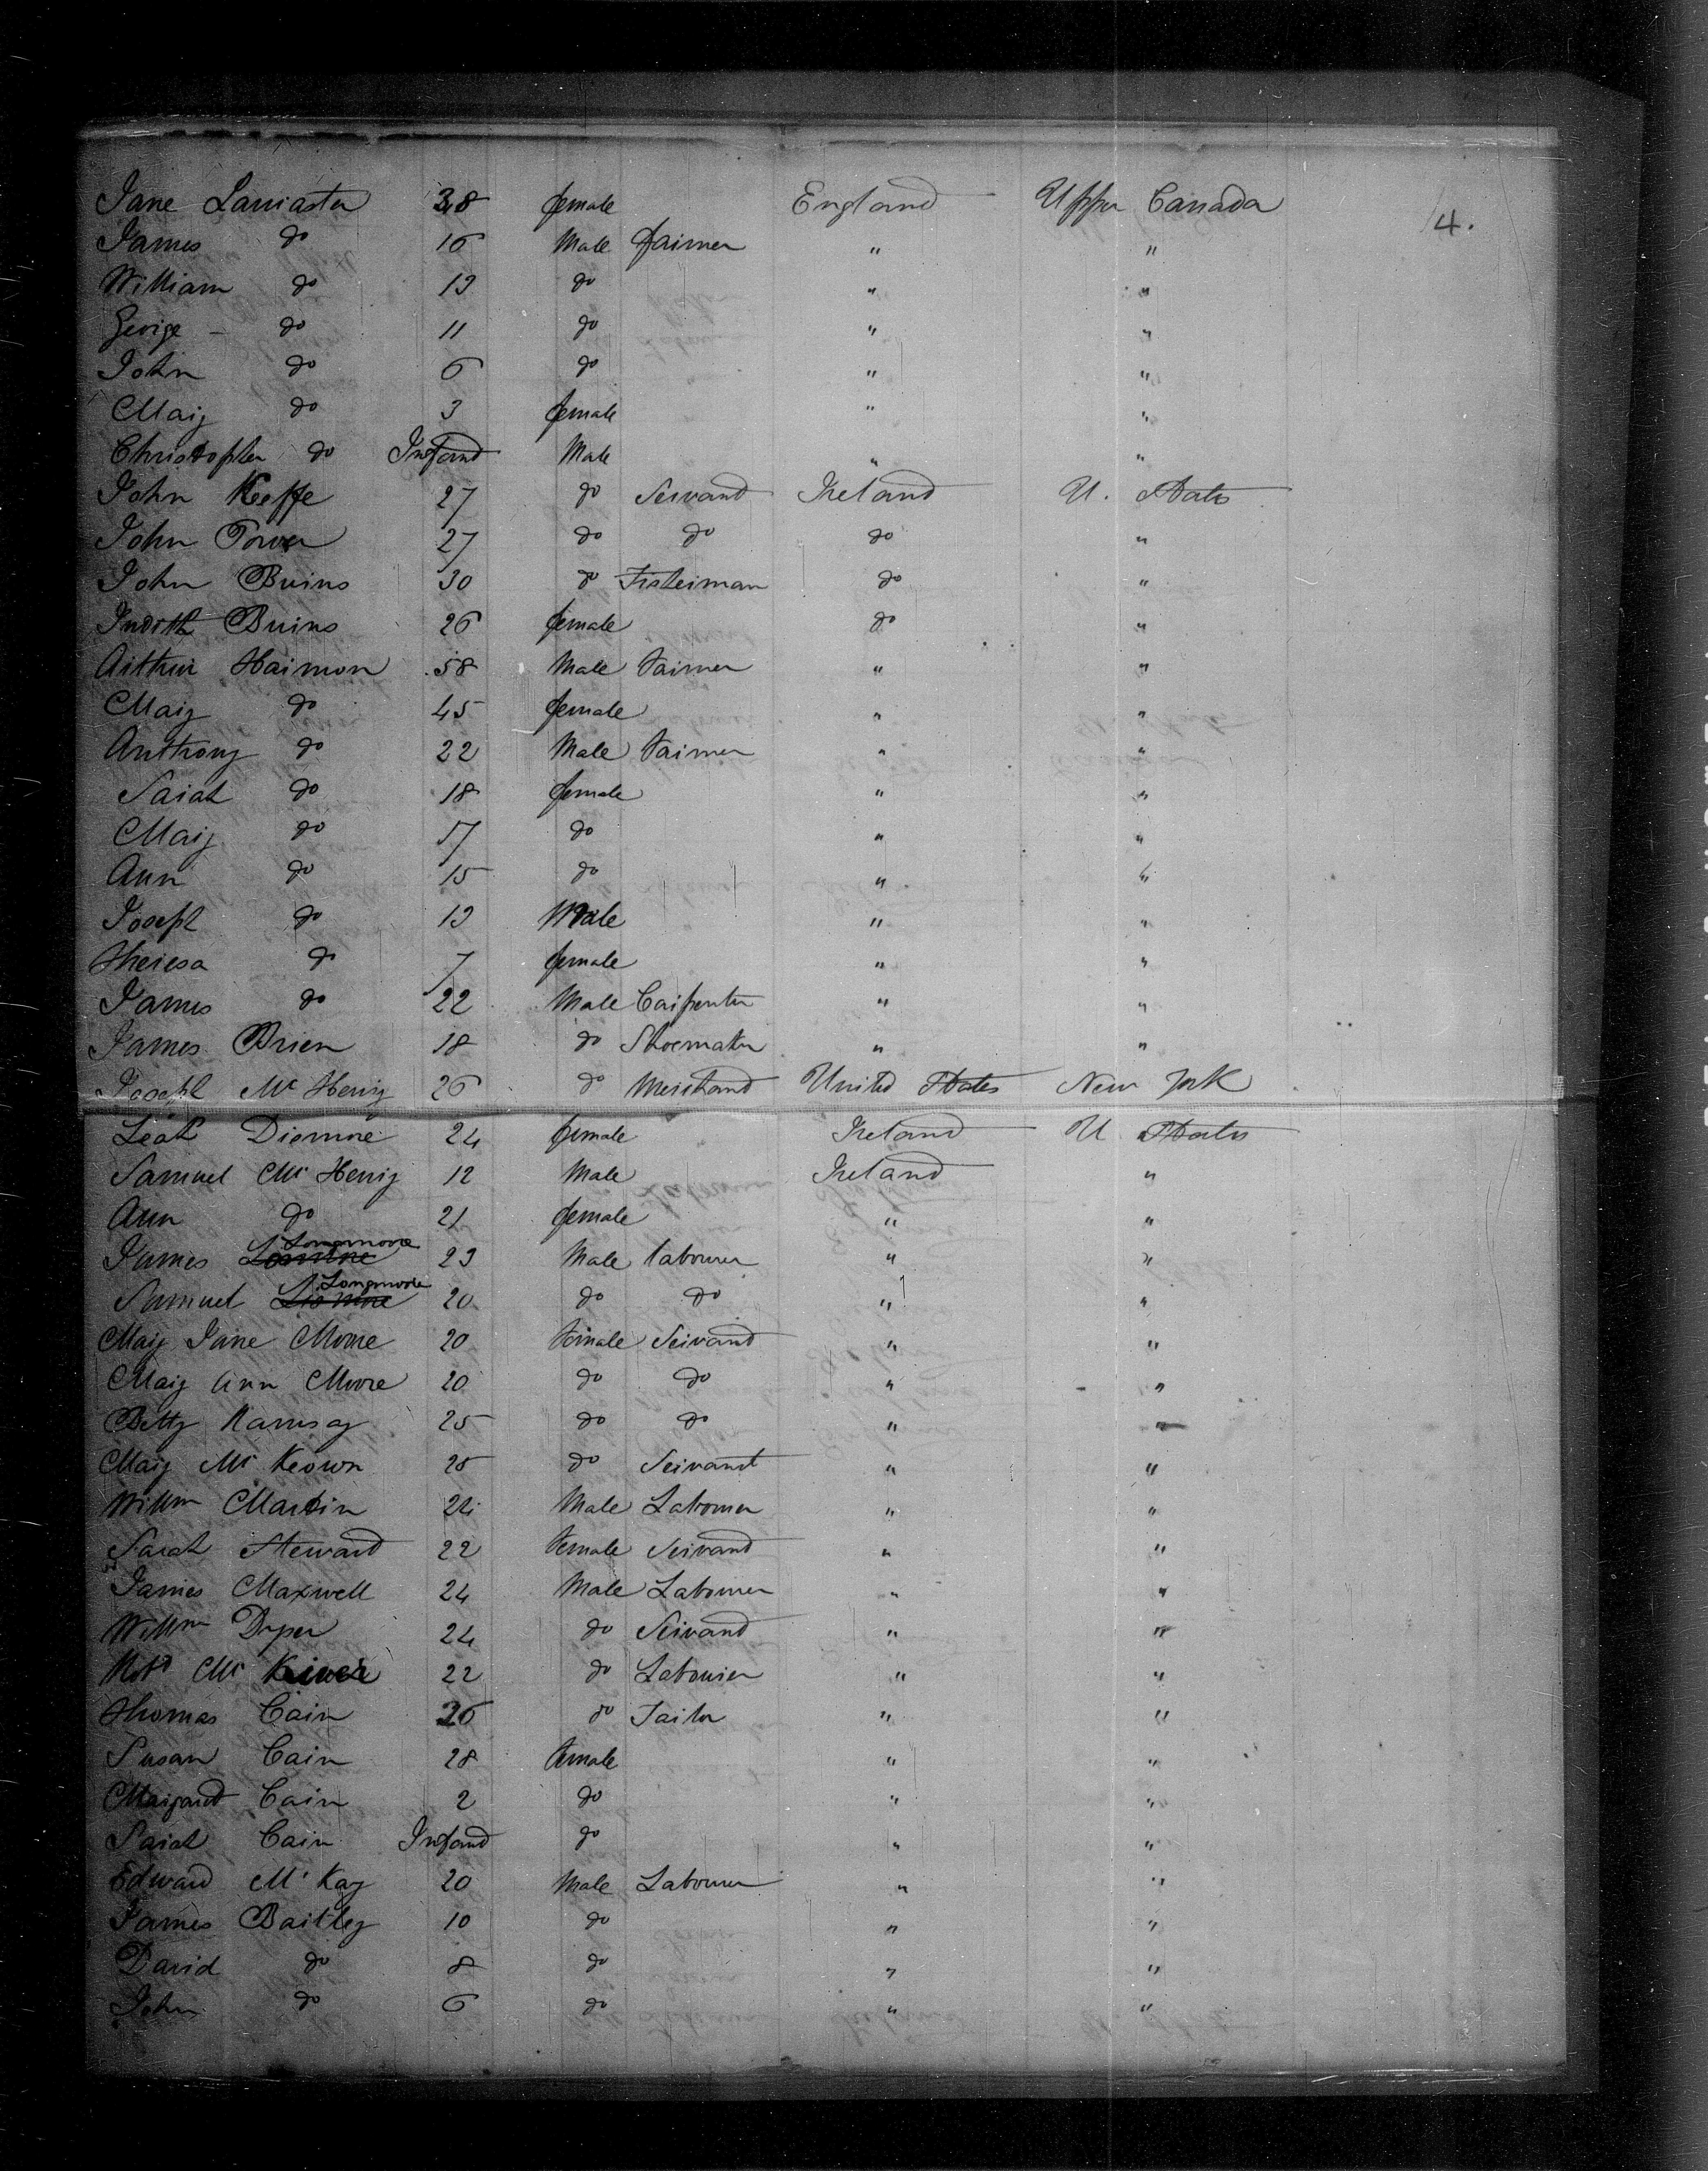 4.
Jane Lancaster 38 female England Upper Canada
James do 16 Male farmer " "
William do 13 do " "
George - do 11 do " "
John do 6 do " "
Mary do 3 female " "
Christopher do Infand Male " "
John Keeffe 27 do Servand Ireland U. States
John Power 27 do do do "
John Burns 30 do Fisherman do "
Judith Burns 26 female do "
Arthur Harmon 58 Male farmer " "
Mary do 45 female " "
Anthony do 22 Male farmer " "
Sarah do 18 female " "
Mary do 17 do " "
Ann do 15 do " "
Joseph do 13 Male " "
Theresa do 7 female " "
James do 22 Male Carpenter " "
James Brien 18 do Shoemaker " "
Joseph Mc Henry 26 do Merchand United States New York
Leah Dismore 24 female Ireland U States
Samuel Mc Henry 12 Male Ireland "
Ann do 21 female " "
James Longmoore 23 Male labourer " "
Samuel Longmoore 20 do do " "
Mary Jane Moore 20 female Servand " "
Mary Ann Moore 20 do do " "
Betty Ramsay 25 do do " "
Mary Mc Keown 25 do Servant " "
Willm Martin 24 Male Labourer " "
Sarah Steward 22 female Servand " "
James Maxwell 24 Male Labourer " "
Willm Dyper 24 do Servand " "
Mc 22 do Labourer " "
Thomas Cain 26 do Tailor " "
Susan Cain 28 female " "
Margaret Cain 2 do " "
Sarah Cain Infand do " "
Edward Mc Kay 20 Male Labourer " "
James Bartley 10 do " "
David do 8 do " "
John do 6 do " "